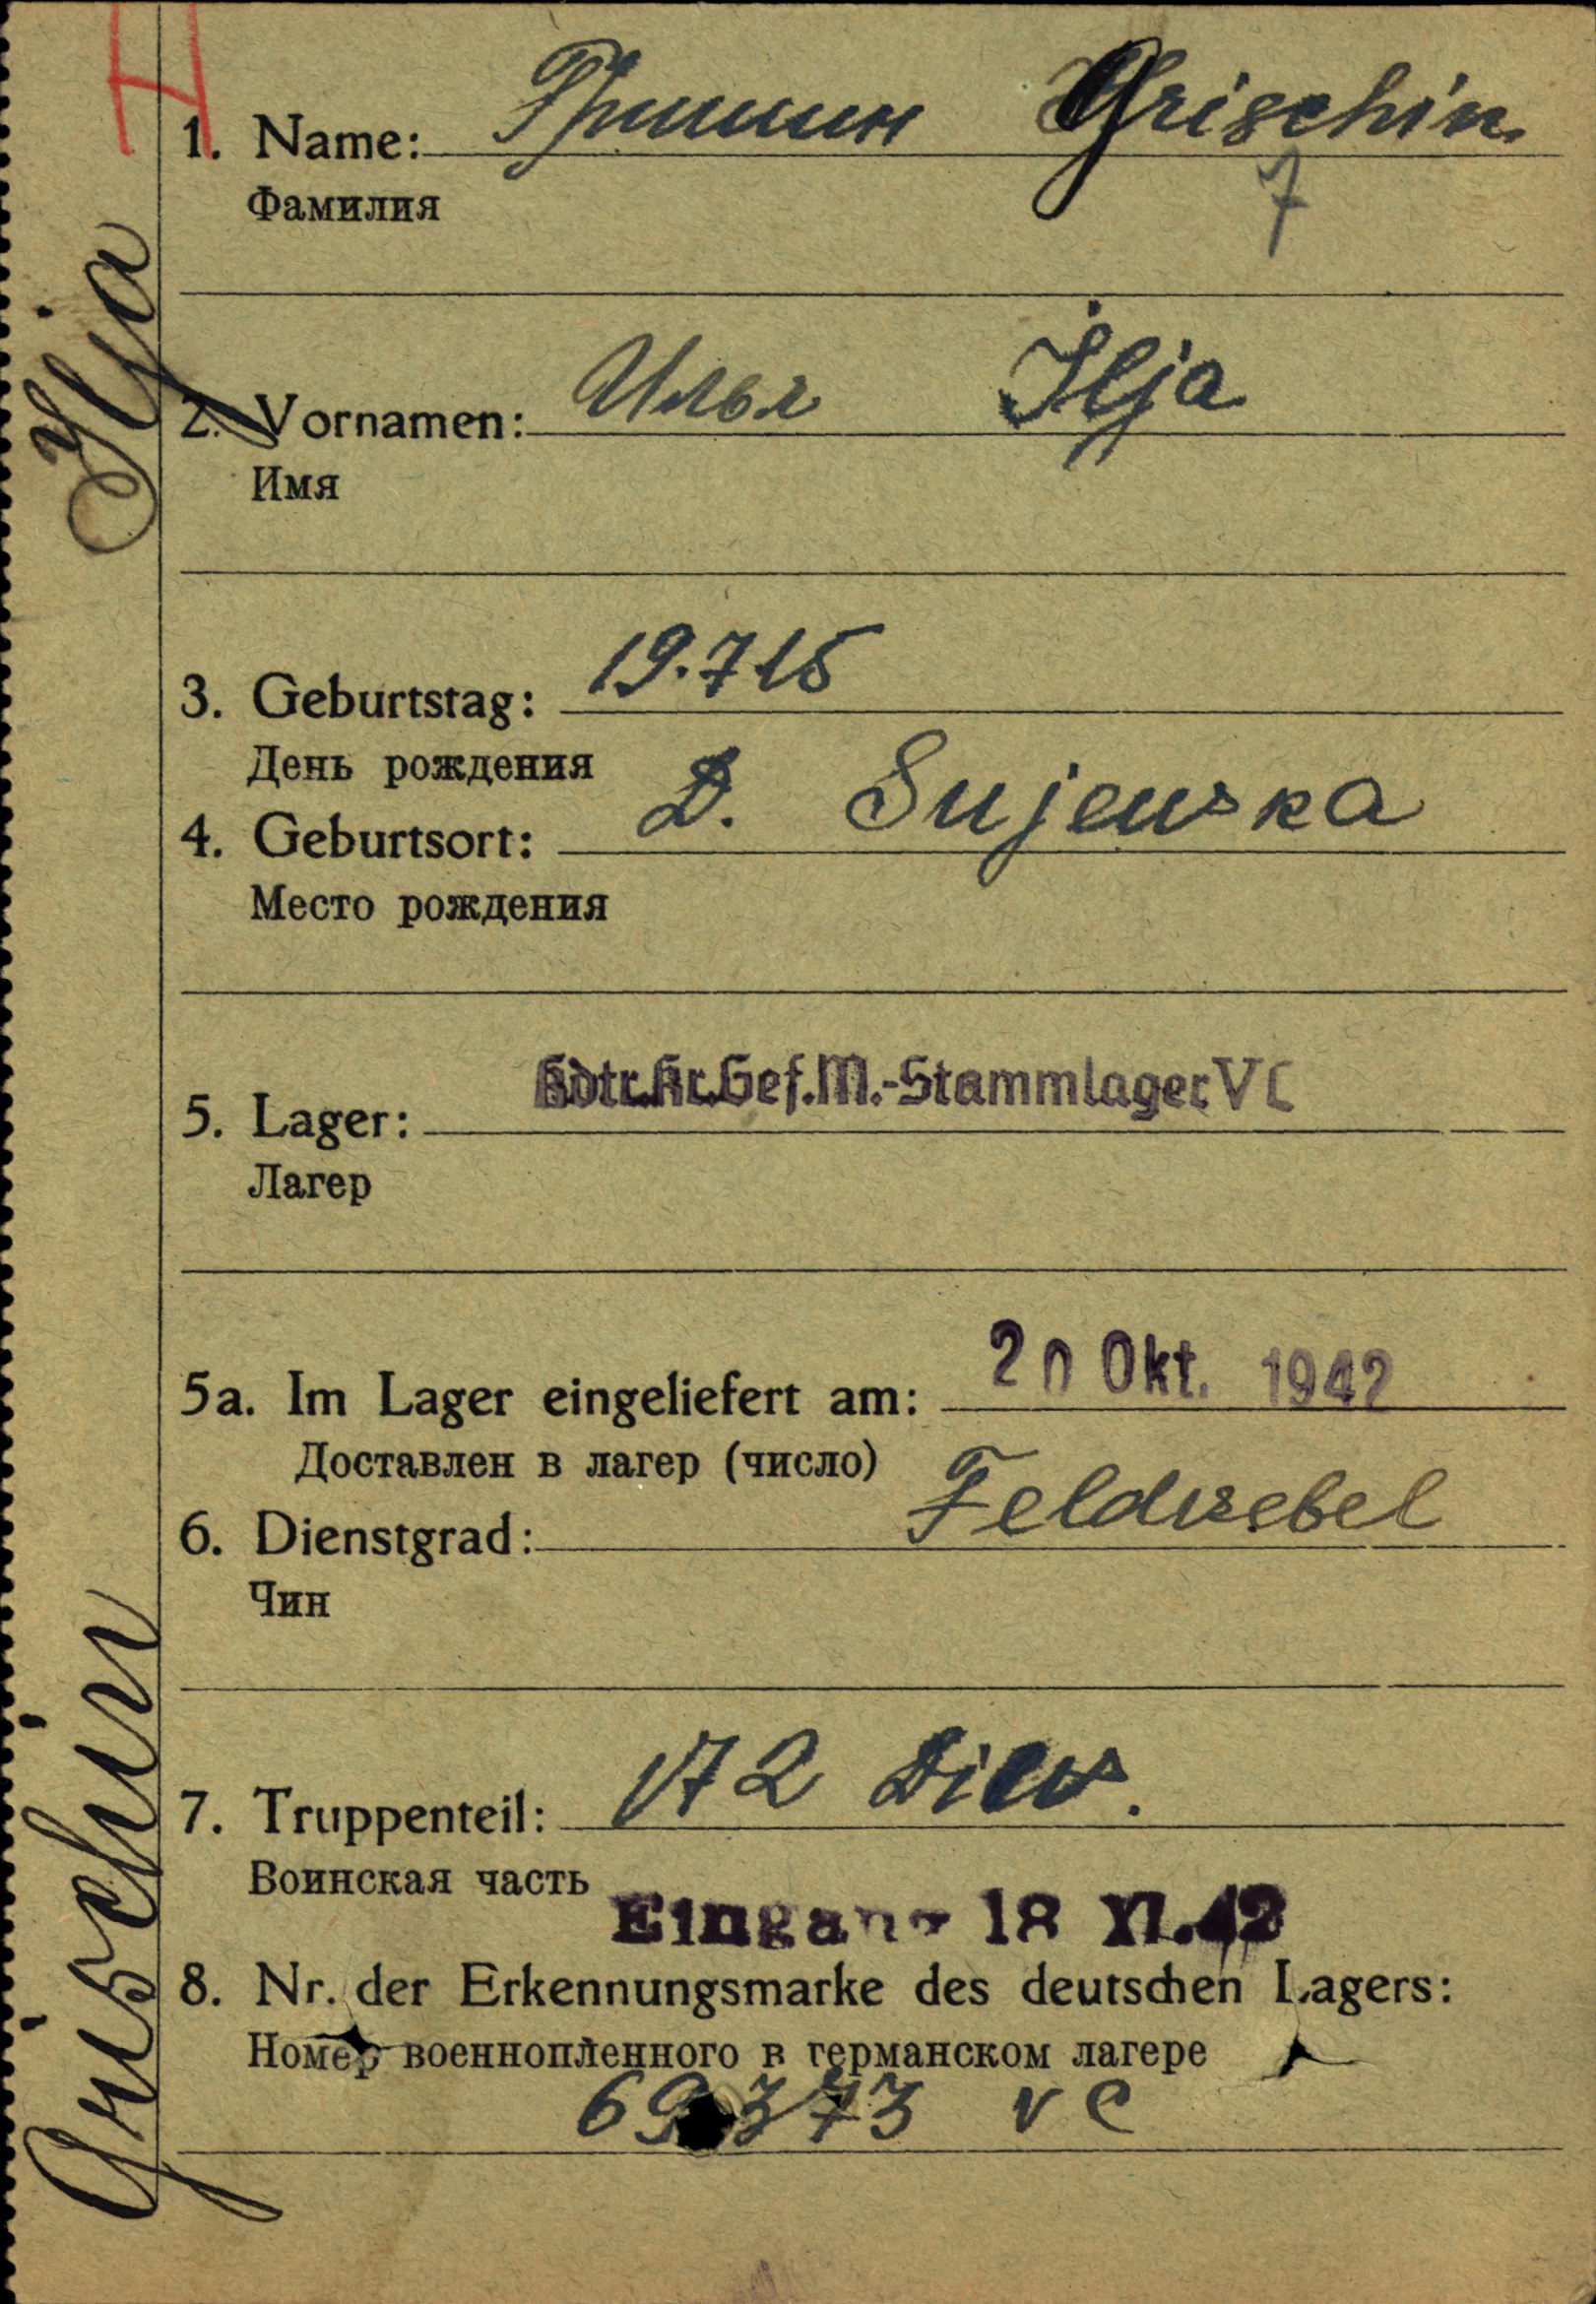 H
1. Name: Гришин Grischin
Фамилия
7
2. Vornamen: Илья Ilja
Имя
3. Geburtstag: 19.7 15
День рождения
4. Geburtsort: D. Sujewska
Место рождения
5. Lager: Kdtr.Kr.Gef.M.-Stammlager V C
Лагер
5a. Im Lager eingeliefert am: 20 Okt. 1942
Доставлен в лагер (число)
6. Dienstgrad: Feldwebel
Чин
7. Truppenteil: 172 Diws.
Воинская часть
Eingang 18 XI.42
8. Nr. der Erkennungsmarke des deutschen Lagers:
Номер военнопленного в германском лагере
69373 V C
Grischin Ilja